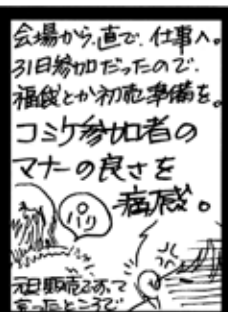 会場から、直で、仕事へ。
31日参加だったので、
福袋とか初売準備を。
コミケ参加者の
マナーの良さを
痛感。
元日販売ですって
言ったところで